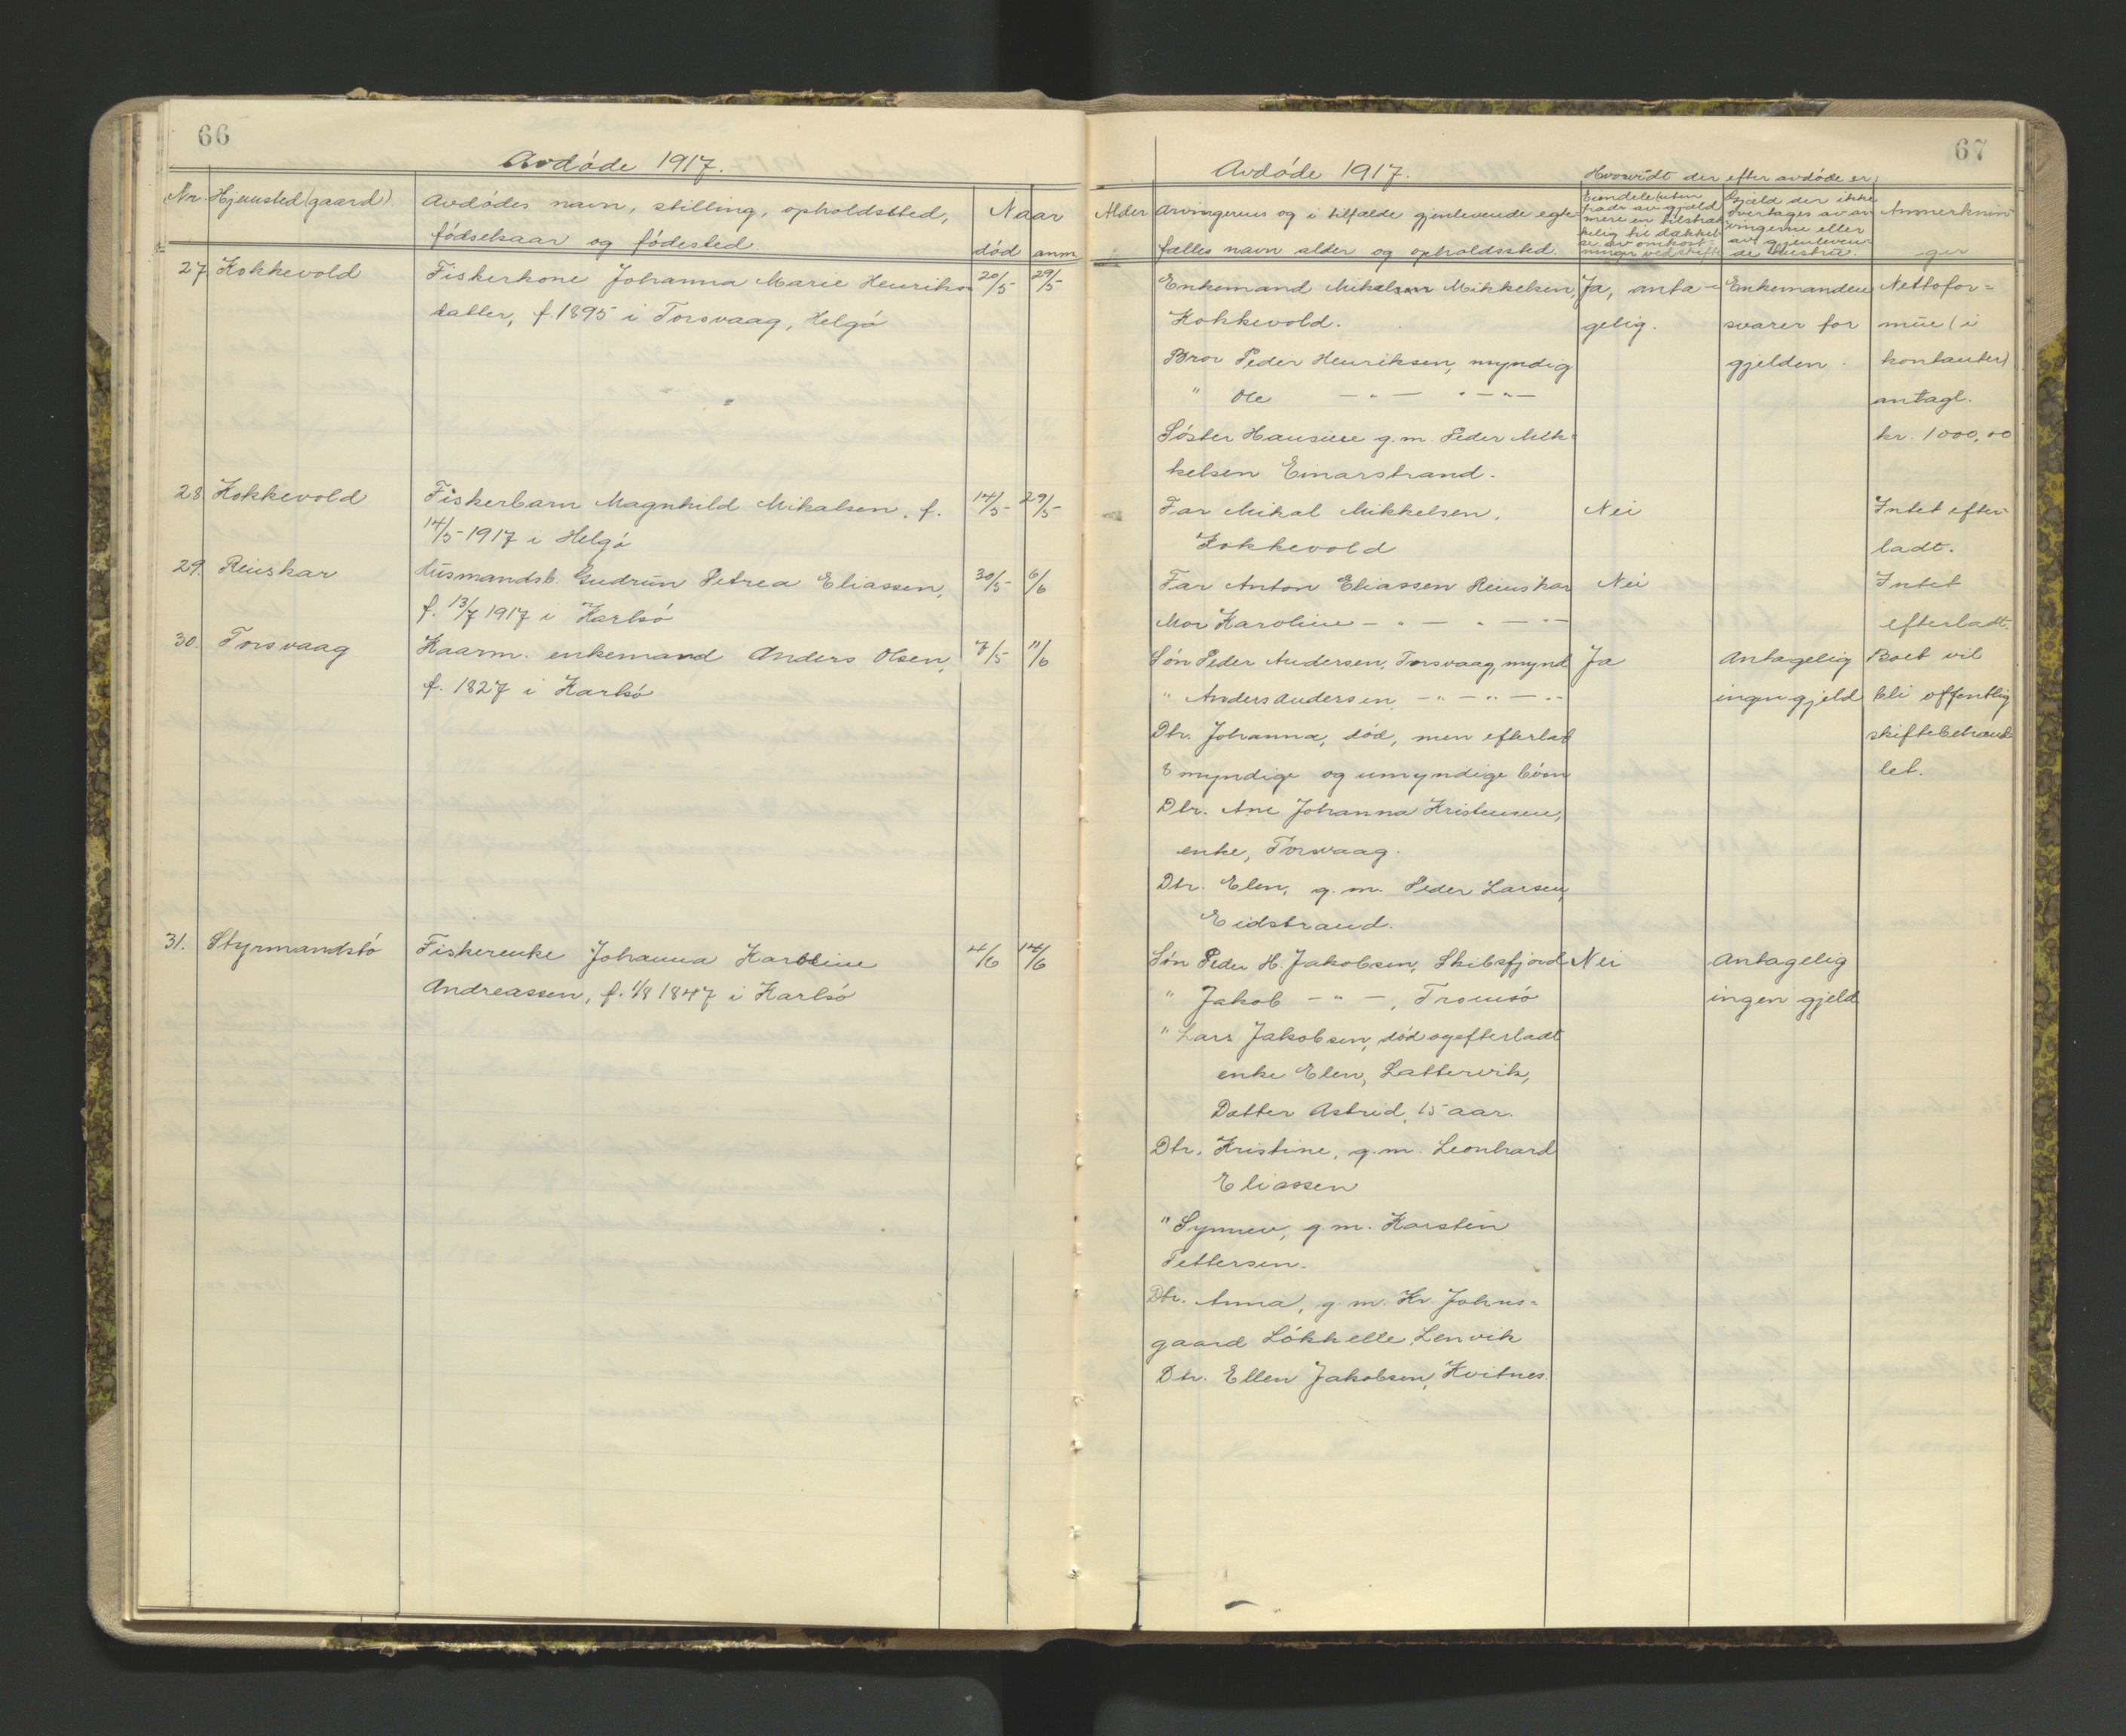 66
Avdøde 1917.
Nr. Hjemsted (gaard). Avdødes navn, stilling, opholdssted, Naar
fødselsaar og fødested. død anm.
27 Kokkevold Fiskerkone Johanna Marie Henriks 20/5 29/5
datter, f. 1895 i Torsvaag, Helgø
28. Kokkevold Fiskerbarn Magnhild Mikalsen, f. 14/5 29/5
14/5 1917 i Helgø
29. Reinskar Husmandsb. Gudrun Petrea Eliassen, 30/5 6/6
f. 13/7 1917 i Karlsø
30. Torsvaag Kaarm. enkemand Anders Olsen, 7/5 11/6
f. 1827 i Karlsø
31. Styrmandstø Fiskerenke Johanna Karoline 4/6 14/6
Andreassen, f. 1/8 1847 i Karlsø
67
Avdøde 1917. Hvorvidt der efter avdøde er
Alder Arvingernes og i tilfælde gjenlevende egte-
fælles navn alder og opholdssted.
Eiendele (uten
fradr av gjæld
mere en tilstræk
kelig til dækkel
se av omkost-
ninger ved skifte
Gjæld der ikke
overtages av ar
vingerne eller
av gjenleven-
de hustru.
Anmerknin
ger
Enkemand Mikalsen Mikkelsen, Ja, anta- Enkemanden Nettofor-
Kokkevold. gelig. svarer for mue (i
Bror Peder Henriksen, myndig gjelden. kontanter)
" Ole — " — " — " — antagl.
Søster Hansine g.m. Peder Mik- kr. 1000,00
kelsen Einarstrand.
Far Mikal Mikkelsen, Nei Intet efter-
Kokkevold ladt.
Far Anton Eliassen Reinskar Nei Intet
Mor Karoline — " — " — " — efterladt.
Søn Peder Andersen, Torsvaag, mynd Ja Antagelig Boet vil
" Anders Andersen — " — " — " — ingen gjeld bli offentlig
Dtr. Johanna, død, men efterlat skiftebehand-
8 myndige og umyndige børn let.
Dtr. Ane Johanna Kristensen,
enke, Torsvaag.
Dtr. Elen, g.m. Peder Larsen,
Eidstrand.
Søn Peder H. Jakobsen, Skibsfjord Nei Antagelig
" Jakob — " —, Tromsø ingen gjeld
" Lars Jakobsen, død og efterladt
enke Elen, Lattervik,
Datter Astrid, 15 aar.
Dtr. Kristine, g.m. Leonhard
Eliassen
" Synnev, g.m. Karsten
Pettersen.
Dtr. Anna, g.m. Kr. Johns-
gaard Løkhelle, Lenvik
Dtr. Ellen Jakobsen, Kvitnes.